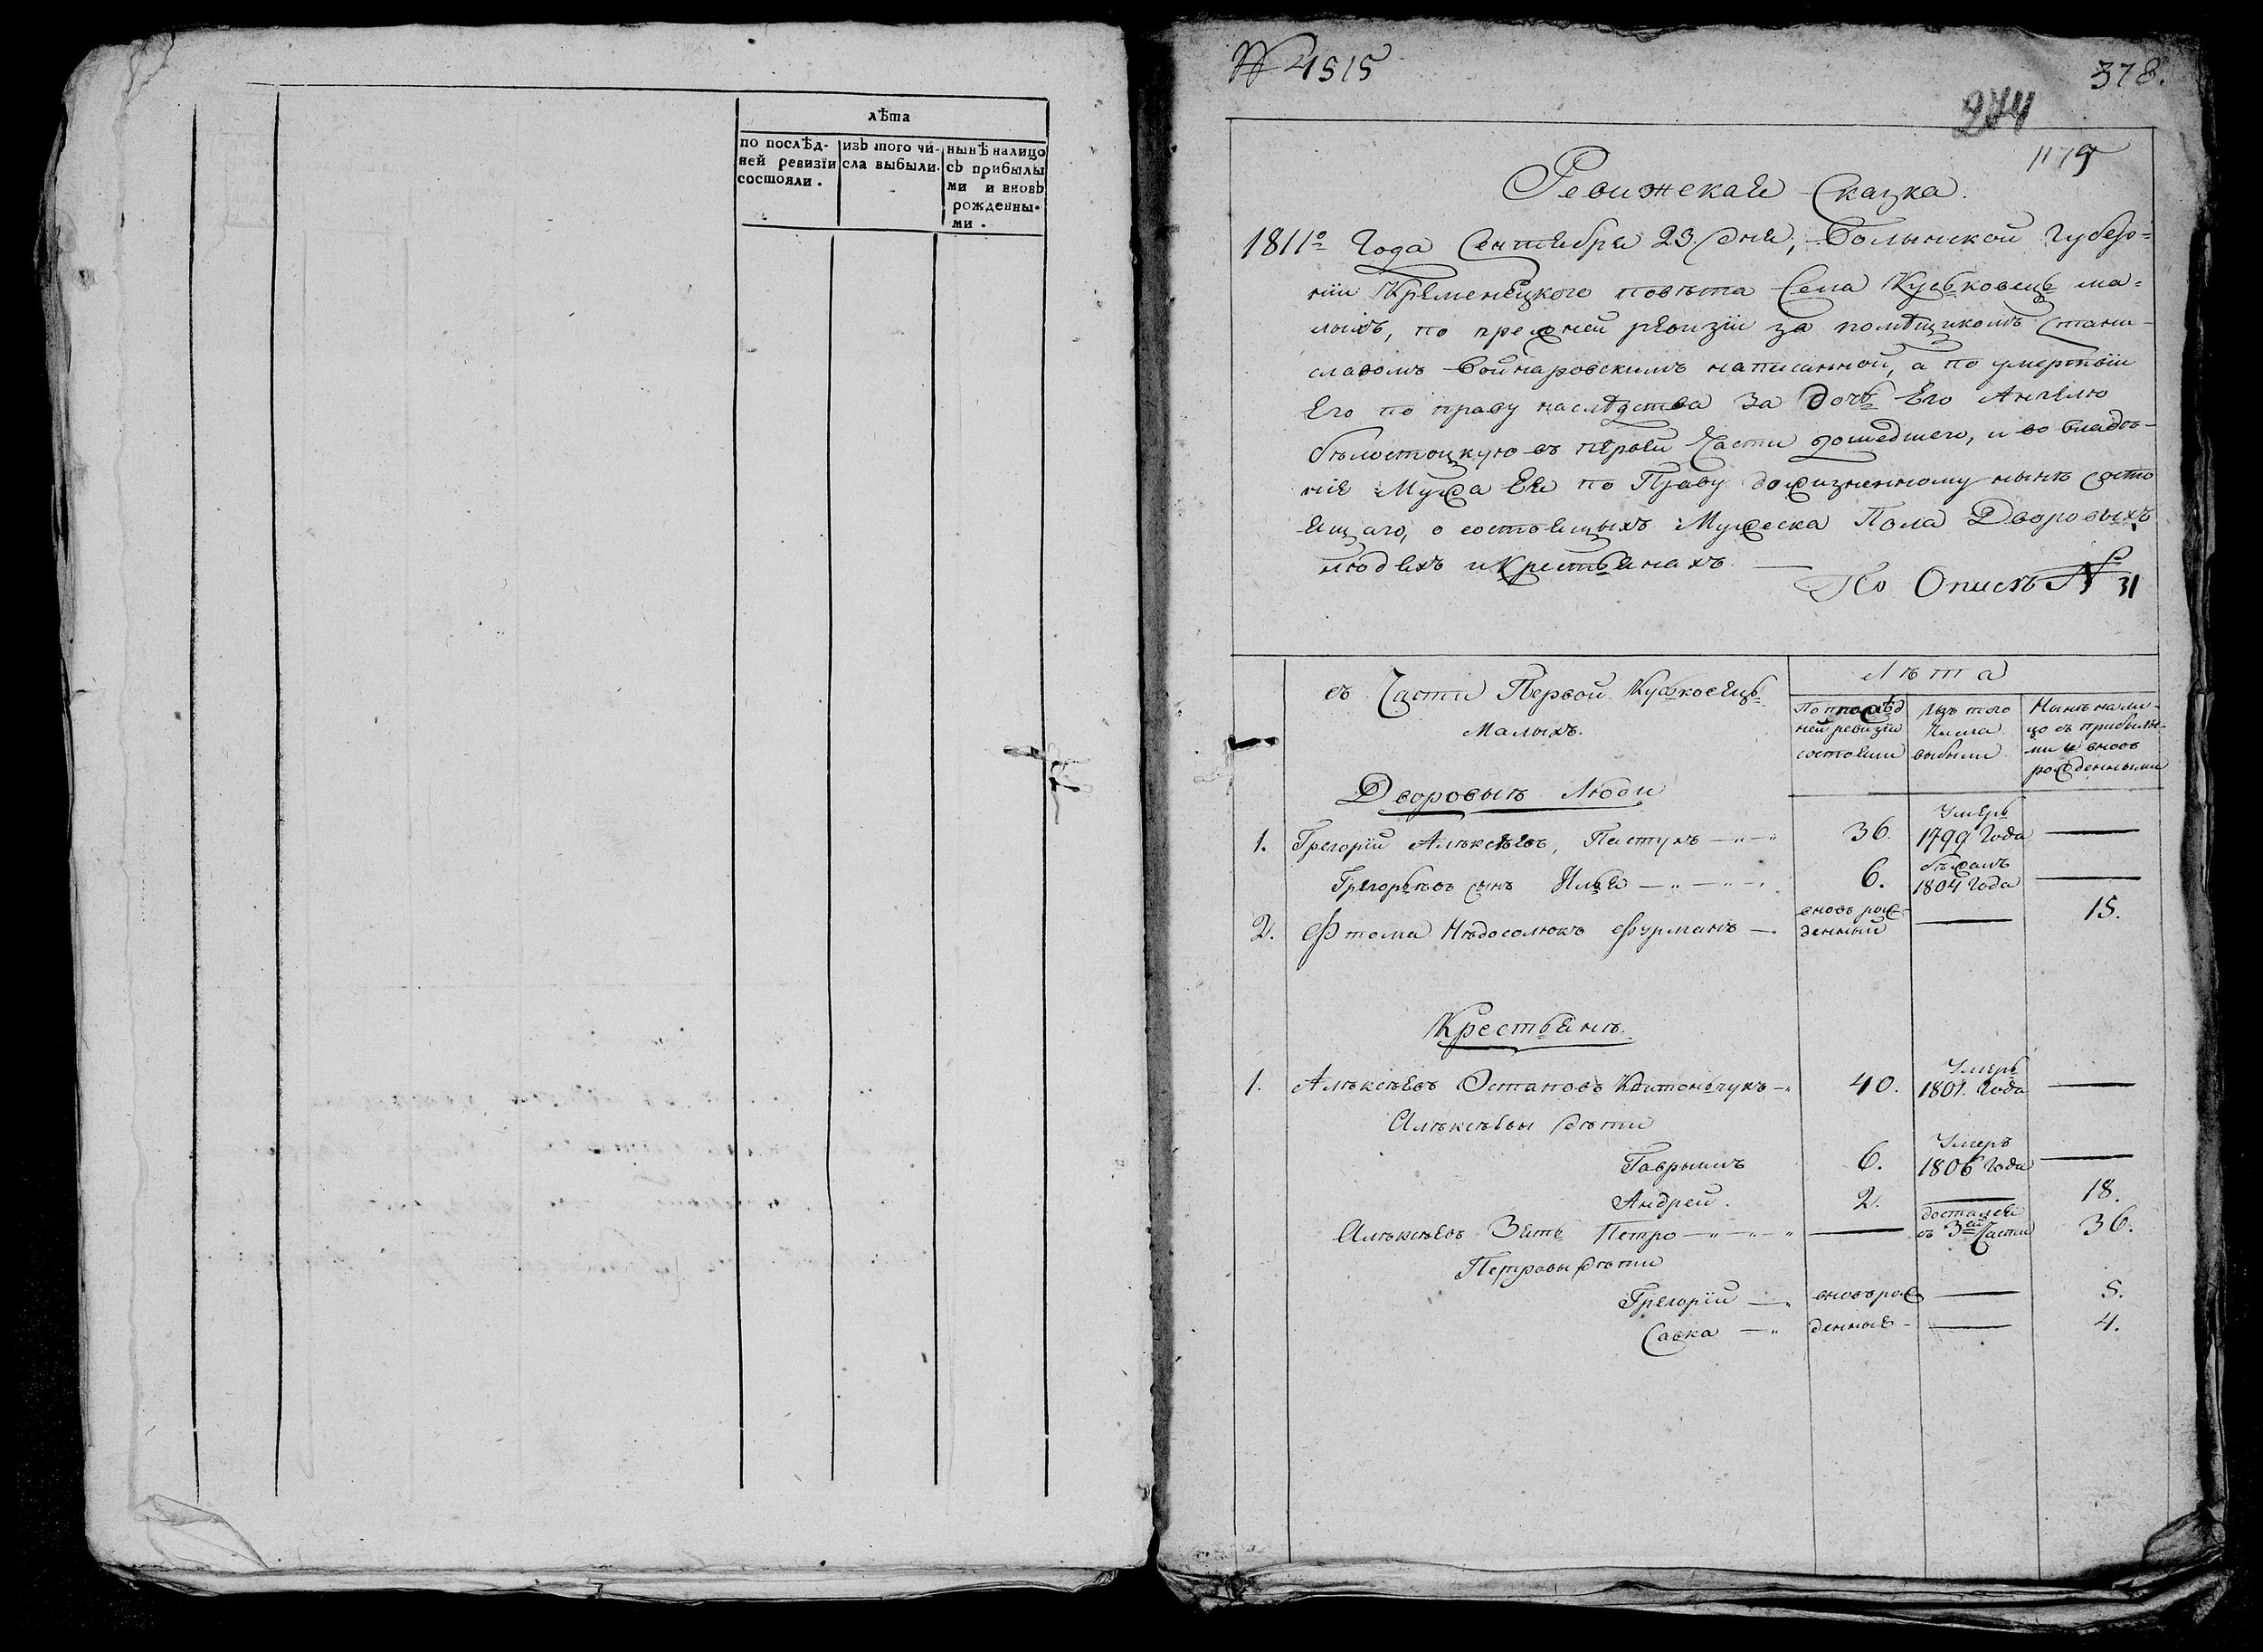 лѣта
по послѣд-
ней ревизїи
состояли.
изъ того чи-
сла выбыли.
нынѣ налицо
съ прибылы
ми и вновь
рожденны-
ми.
№ 4515
378.
274
1179
Ревижская Сказка.
1811го Года Сентября 23. дня, Волынской Губер=
нїи Кременецкого повѣта Села Куськовець ма=
лыхъ, по прежней ревизїи за помѣщикомъ Стани-
славомъ Войнаровскимъ написанной, а по умертвїи
Его по праву наслѣдства за дочь Его Ангелю
бѣлостоцкую въ первей Части дошедшего, и во владѣ-
нїе Мужа Ея по Праву дожизненному нынѣ состо
ящаго, о состоящыхъ Мужеска Пола Дворовыхъ
людяхъ и Крестьянахъ. —
По Описѣ № 31
въ Части Первой Куськовець
Малыхъ.
Лѣта
По послѣд
ней ревизїи
состояли
Изъ того
Числа
выбыли
Нынѣ нали-
цо съ прибылы-
ми и вновь
рожденными
Дворовыѣ Люди
Умерь
1. Грегорїй Алѣксѣевъ, Пастухъ — 36. 1799 Года —
бѣжалъ
Грегорьѣвъ сынъ Илья — 6. 1804 Года —
вновь рож-
2. Фтома Нѣдосолюкъ Фурманъ —. денный — 15.
Крестьянѣ.
Умерь
1. Алѣксѣевъ Остаповъ Хвитоньчукъ — 40. 1801. Года —
Алѣксѣевы дѣти
Умеръ
Гаврылъ 6. 1806 Года —
Андрей. 2. — 18.
достался
Алѣксѣевъ Зять Петро — — съ 3ей Части 36.
Петровы дѣти
Грегорїй — вновь рож — 5.
Савка — денныѣ — 4.